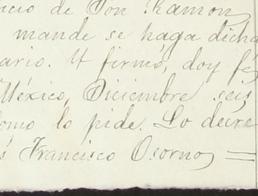 icio de Don Ramon
mande se haga dicha
ario. Y firmó, doy fé
México, Diciembre seis
omo lo pide. Lo decre
Francisco Osorno =